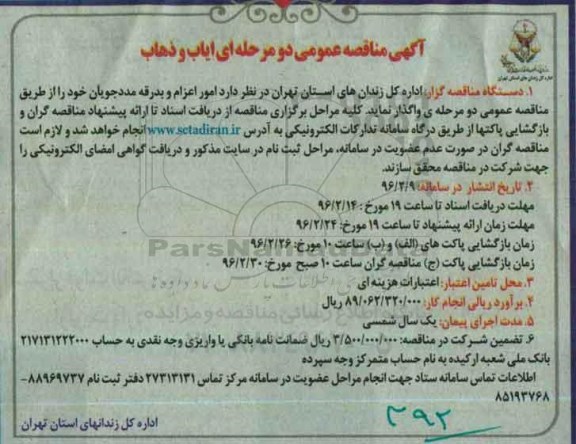 آگهی مناقصه عمومی دو مرحله ای ایاب و ذهاب
اداره کل زندان های استان تهران
۱. دستگاه مناقصه گزار: اداره کل زندان های استان تهران در نظر دارد امور اعزام و بدرقه مددجویان خود را از طریق
مناقصه عمومی دو مرحله ی واگذار نماید. کلیه مراحل برگزاری مناقصه از دریافت اسناد تا ارائه پیشنهاد مناقصه گران و
بازگشایی پاکتها از طریق درگاه سامانه تدارکات الکترونیکی به آدرس www.setadiran.ir انجام خواهد شد و لازم است
مناقصه گران در صورت عدم عضویت در سامانه، مراحل ثبت نام در سایت مذکور و دریافت گواهی امضای الکترونیکی را
جهت شرکت در مناقصه محقق سازند.
۲. تاریخ انتشار در سامانه: ۹۶/۲/۹
مهلت دریافت اسناد تا ساعت ۱۹ مورخ: ۹۶/۲/۱۴
مهلت زمان ارائه پیشنهاد تا ساعت ۱۹ مورخ: ۹۶/۲/۲۴
زمان بازگشایی پاکت های (الف) و (ب) ساعت ۱۰ مورخ: ۹۶/۲/۲۶
زمان بازگشایی پاکت (ج) مناقصه گران ساعت ۱۰ صبح مورخ: ۹۶/۲/۳۰
۳. محل تامین اعتبار: اعتبارات هزینه ای
۴. برآورد ریالی انجام کار: ۸۹/۰۶۲/۳۲۰/۰۰۰ ریال
۵. مدت اجرای پیمان: یک سال شمسی
۶. تضمین شرکت در مناقصه: ۳/۵۰۰/۰۰۰/۰۰۰ ریال ضمانت نامه بانکی یا واریزی وجه نقدی به حساب ۲۱۷۱۳۱۲۲۲۰۰۰
بانک ملی شعبه ارکیده به نام حساب متمرکز وجه سپرده
اطلاعات تماس سامانه ستاد جهت انجام مراحل عضویت در سامانه مرکز تماس ۲۷۳۱۳۱۳۱ دفتر ثبت نام ۸۸۹۶۹۷۳۷-
۸۵۱۹۳۷۶۸
اداره کل زندانهای استان تهران
۳۹۲